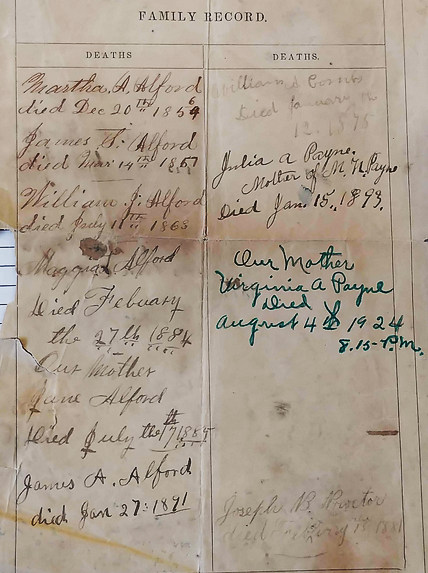 FAMILY RECORD.
DEATHS
Martha A. Alford
died Dec 20th
James S. Alford
died Mar 14th 1857
William J. Alford
died July 11th 1863
Alford
Died Febuary
the 27th 1884
Our Mother
Jane Alford
Died July the 17th
James A. Alford
died Jan 27: 1891
DEATHS.
William
Died January
12. 1875
Julia A Payne.
Mother of M. N. Payne
Died Jan. 15, 1893.
Our Mother
Virginia A Payne
Died
August 4 1924
8.15 P.M.
Joseph B. Proctor
died